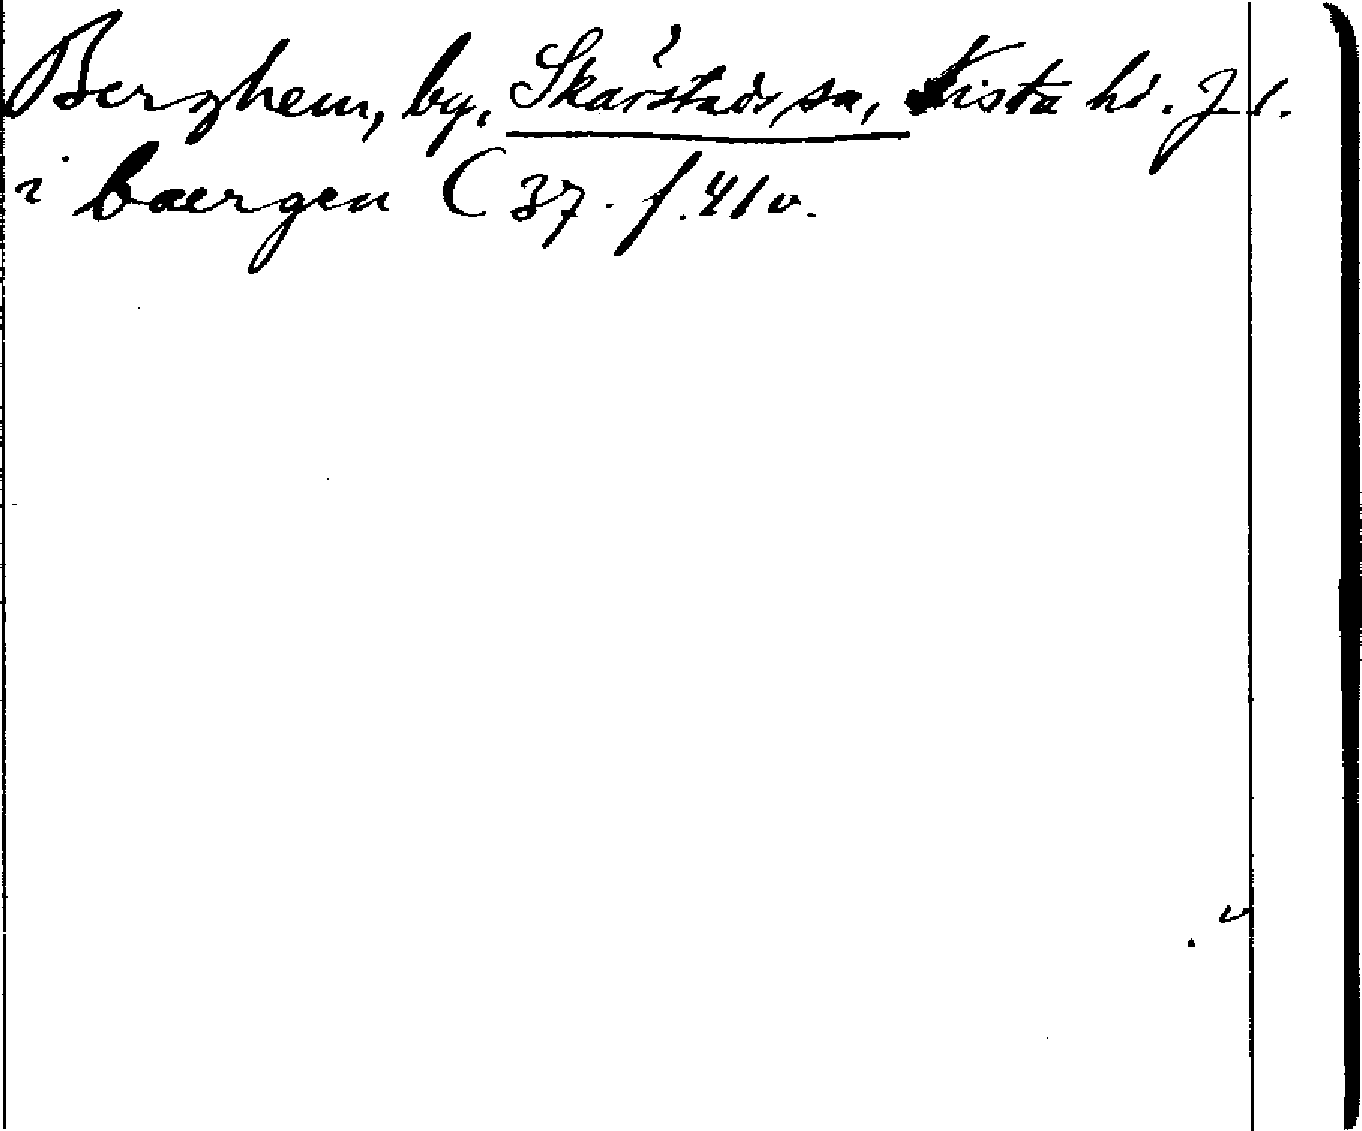 Berghem, by, Skärstads sn, Vista hd. J. l.
i baergen C 37. f. 41 v.